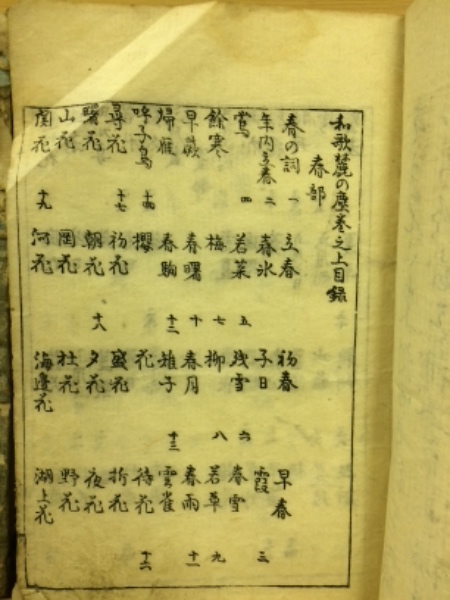 和歌麓の塵巻之上目録
春部
春の詞 一 立春 初春 早春
年内立春 二 春氷 子日 霞 三
鶯 四 若菜 五 残雪 六 春雪
餘寒 梅 七 柳 八 若草 九
早蕨 春曙 十 春月 春雨 十一
帰雁 春駒 十二 雉子 十三 雲雀
呼子鳥 十四 櫻 花 待花 十六
尋花 十七 初花 盛花 折花
曙花 朝花 十八 夕花 夜花
山花 岡花 杜花 野花
関花 十九 河花 海邊花 湖上花